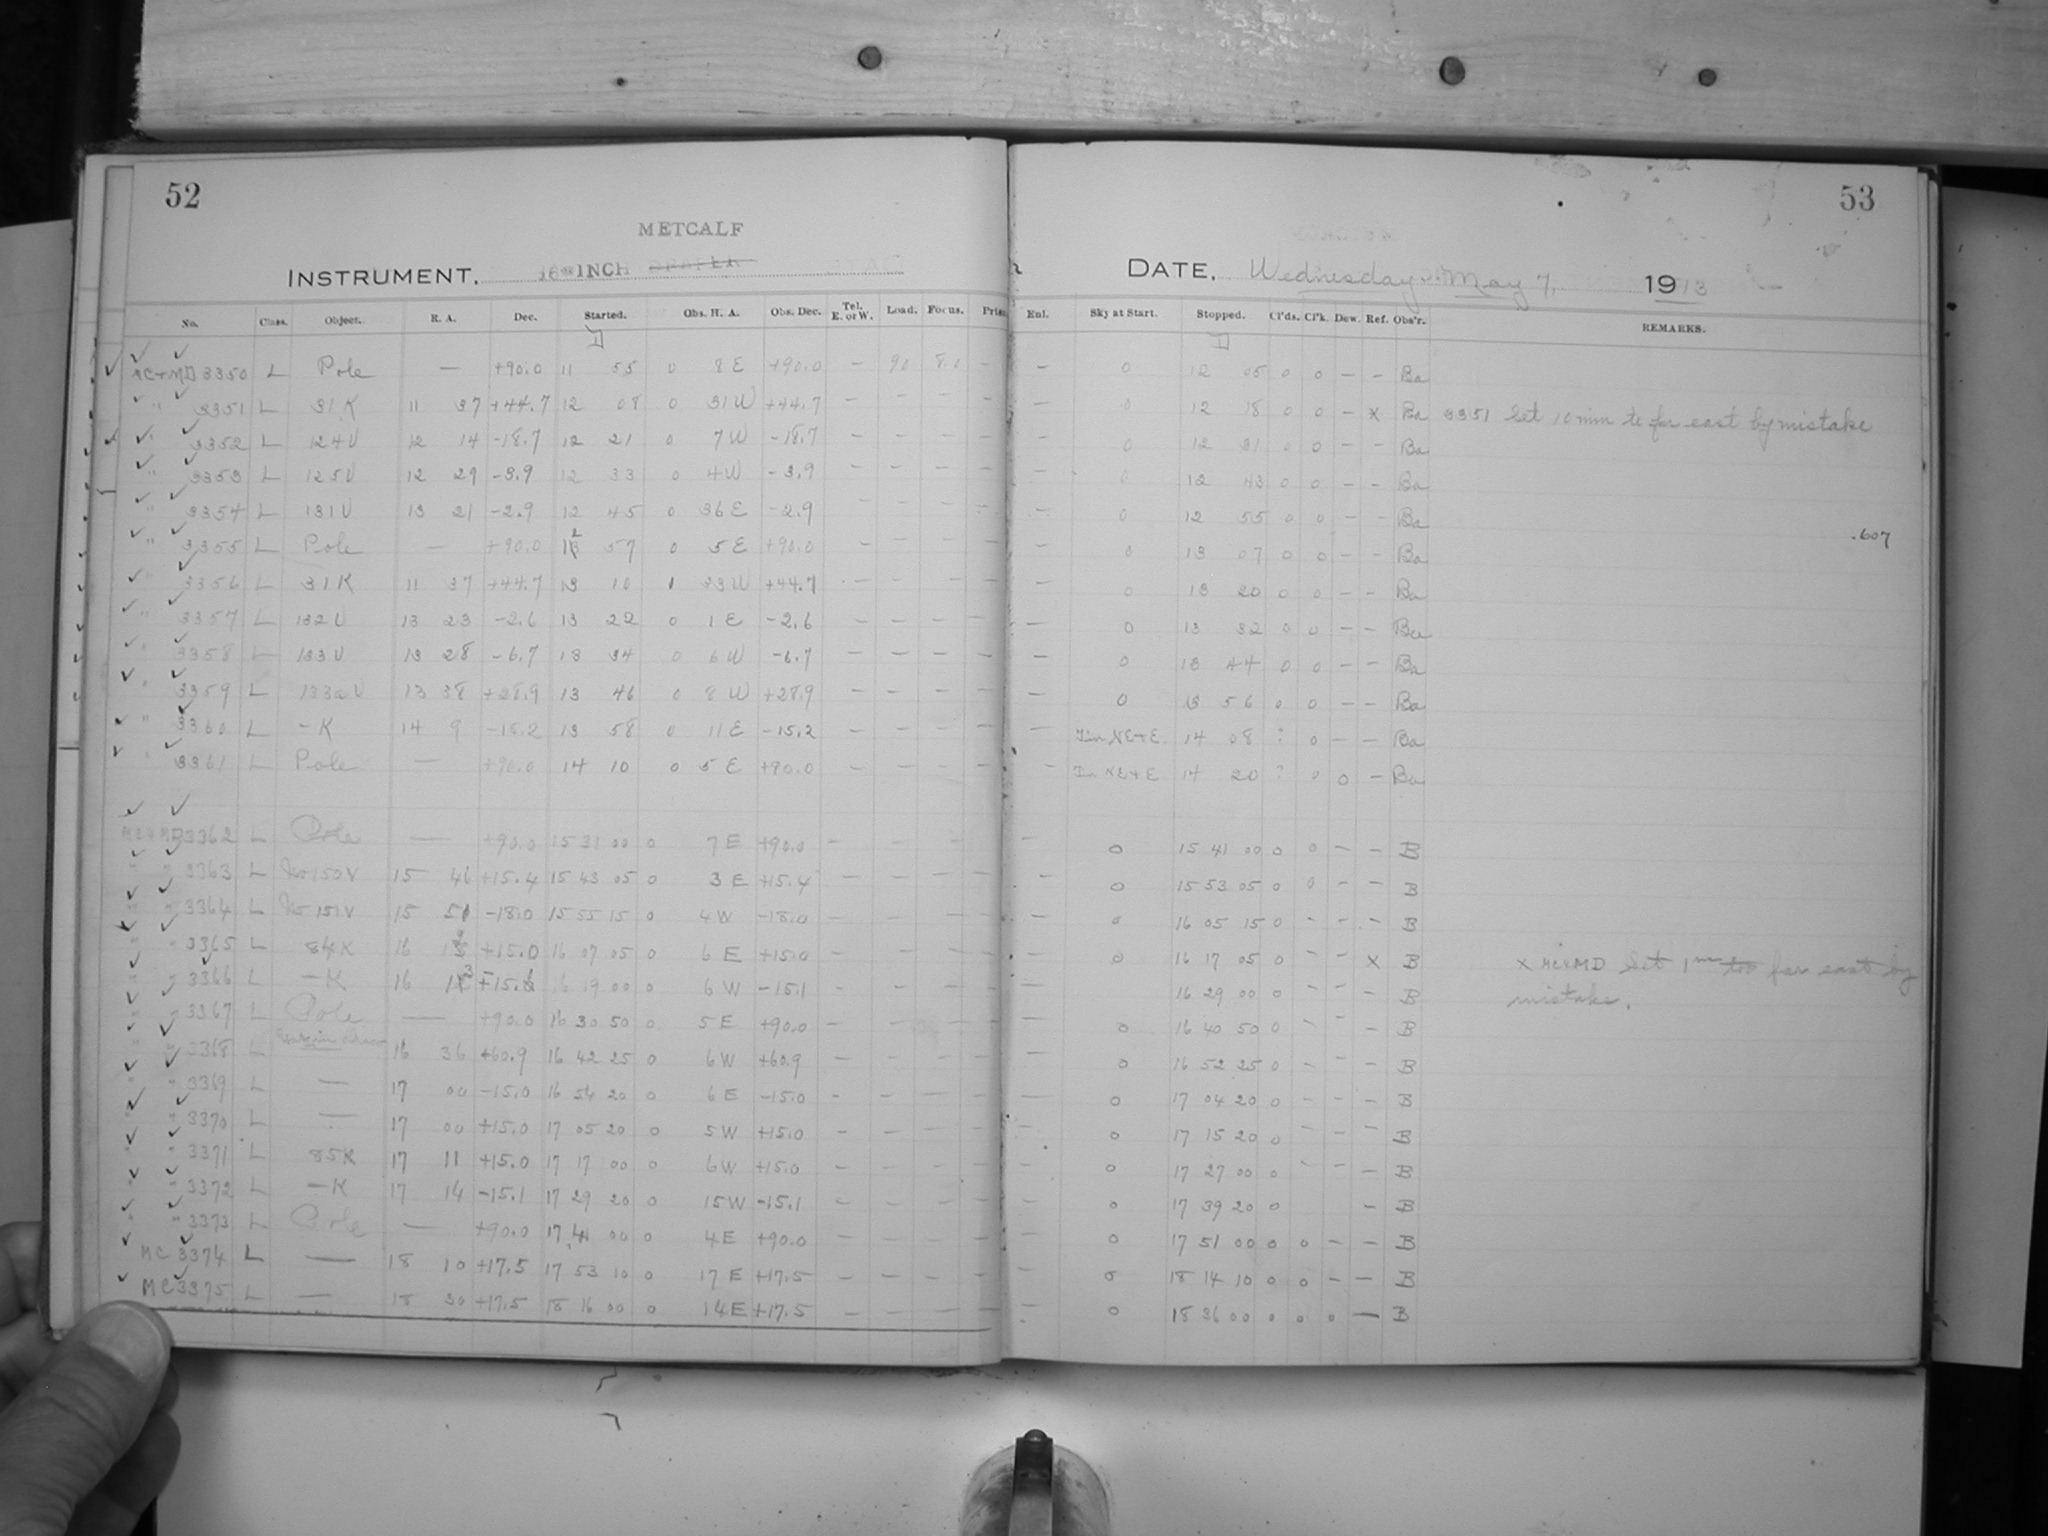 52
53
METCALF
INSTRUMENT. 16-INCH DRAPER
DATE. Wednesday May 7, 1913
No. Class. Object. R. A. Dec. Started. Obs. H. A. Obs. Dec. Tel. E. or W. Load. Focus. Enl. Sky at Start. Stopped. Cl'ds. Cl'k. Dew. Ref. Obs'r. REMARKS.
MC+MD 3350 L Pole — +90.0 11 55 0 8 E +90.0 — 90 8.0 — — 0 12 05 0 0 — — Ba
" 3351 L 31 K 11 37 +44.7 12 08 0 31 W +44.7 — — — — — 0 12 18 0 0 — x Ba 3351 Set 10 min to far east by mistake
" 3352 L 124 V 12 14 -18.7 12 21 0 7 W -18.7 — — — — — 0 12 31 0 0 — — Ba
" 3353 L 125 V 12 29 -3.9 12 33 0 4 W -3.9 — — — — — 0 12 43 0 0 — — Ba
" 3354 L 131 V 13 21 -2.9 12 45 0 36 E -2.9 — — — — 0 12 55 0 0 — — Ba
" 3355 L Pole — +90.0 12 57 0 5 E +90.0 — — — — — 0 13 07 0 0 — — Ba .607
" 3356 L 31 K 11 37 +44.7 13 10 1 33 W +44.7 — — — — — 0 13 20 0 0 — — Ba
" 3357 L 132 V 13 23 -2.6 13 22 0 1 E -2.6 — — — — — 0 13 32 0 0 — — Ba
" 3358 L 133 V 13 28 -6.7 13 34 0 6 W -6.7 — — — — — 0 13 44 0 0 — — Ba
" 3359 L 133a V 13 38 +28.9 13 46 0 8 W +28.9 — — — — — 0 13 56 0 0 — — Ba
" 3360 L — K 14 9 -15.2 13 58 0 11 E -15.2 — — — — — NE+E. 14 08 ? 0 — — Ba
" 3361 L Pole — +90.0 14 10 0 5 E +90.0 — — — — — NE+E 14 20 ? 0 0 — Ba
MC+MD 3362 L Pole — +90.0 15 31 00 0 7 E +90.0 — — — — — 0 15 41 00 0 0 — — B
" " 3363 L No 150 V 15 46 +15.4 15 43 05 0 3 E +15.4 — — — — — 0 15 53 05 0 0 — — B
" " 3364 L No 151 V 15 51 -18.0 15 55 15 0 4 W -18.0 — — — — — 0 16 05 15 0 — — — B
" " 3365 L 84 K 16 +15.0 16 07 05 0 6 E +15.0 — — — — — 0 16 17 05 0 — — x B x MC+MD Set 1m too far east by
" " 3366 L — K 16 13 16 19 00 0 6 W -15.1 — — — — — 16 29 00 0 — — — B mistake.
" " 3367 L Pole — +90.0 16 30 50 0 5 E +90.0 — — — — — 0 16 40 50 0 — — — B
" " 3368 L 16 36 +60.9 16 42 25 0 6 W +60.9 — — — — — 0 16 52 25 0 — — — B
" " 3369 L — 17 00 -15.0 16 54 20 0 6 E -15.0 — — — — — 0 17 04 20 0 — — — B
" " 3370 L — 17 00 +15.0 17 05 20 0 5 W +15.0 — — — — — 0 17 15 20 0 — — — B
" " 3371 L 85 K 17 11 +15.0 17 17 00 0 6 W +15.0 — — — — — 0 17 27 00 0 — — — B
" " 3372 L — K 17 14 -15.1 17 29 20 0 15 W -15.1 — — — — — 0 17 39 20 0 — B
" " 3373 L Pole — +90.0 17 41 00 0 4 E +90.0 — — — — — 0 17 51 00 0 0 — — B
MC 3374 L — 18 10 +17.5 17 53 10 0 17 E +17.5 — — — — — 0 18 14 10 0 0 — — B
MC 3375 L — 18 30 +17.5 18 16 00 0 14 E +17.5 — — — — — 0 18 36 00 0 0 0 — B